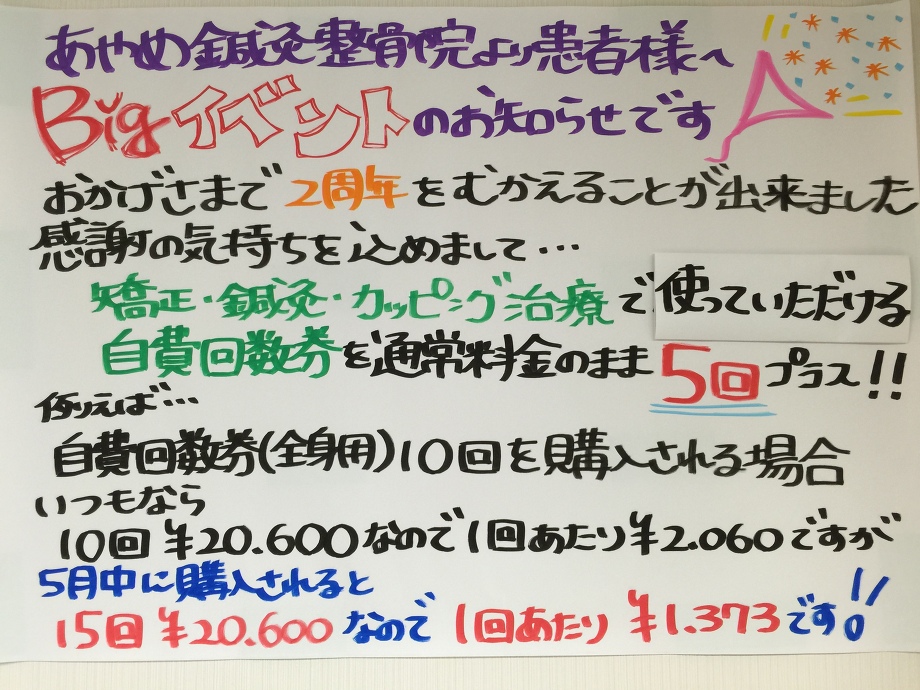 あやめ鍼灸整骨院より患者様へ
Bigイベントのお知らせです
おかげさまで2周年をむかえることが出来ました
感謝の気持ちを込めまして…
矯正・鍼灸・カッピング治療で使っていただける
自費回数券を通常料金のまま5回プラス!!
例えば…
自費回数券(全身用)10回を購入される場合
いつもなら
10回¥20.600なので1回あたり¥2.060ですが
5月中に購入されると
15回¥20.600なので1回あたり¥1.373です!